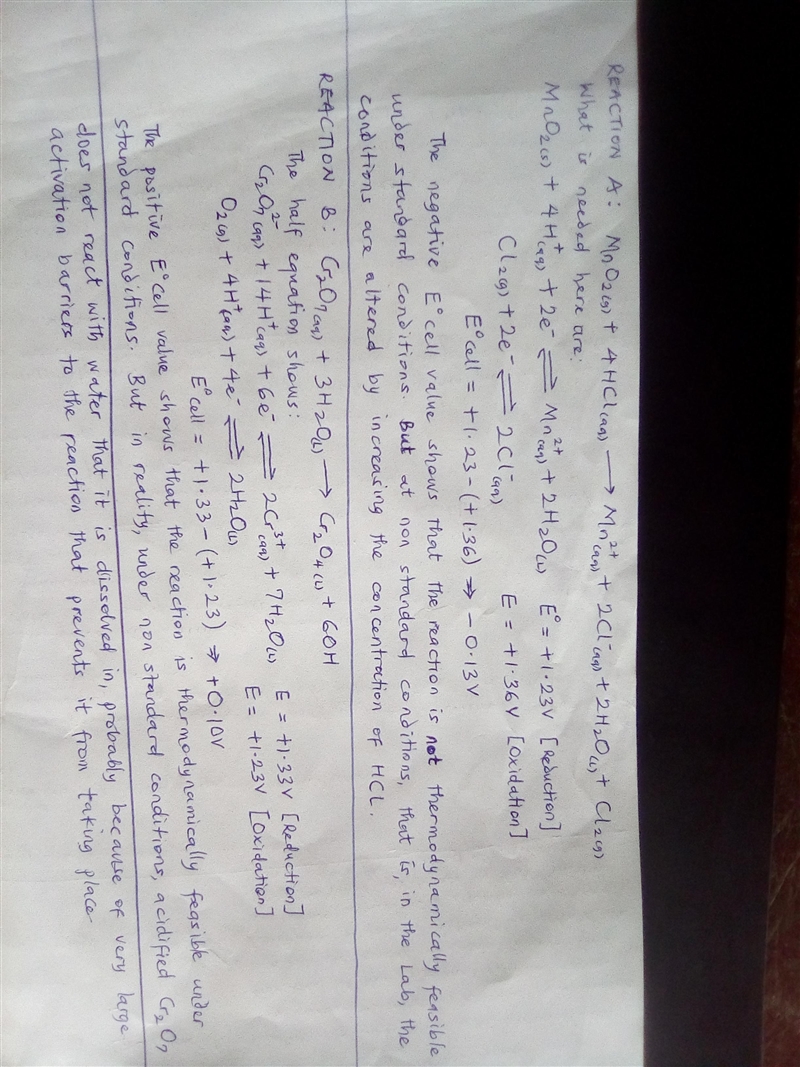 REACTION A: MnO₂(g) + 4HCl(aq) ⟶ Mn²⁺(aq) + 2Cl⁻(aq) + 2H₂O(l) + Cl₂(g)
What is needed here are:
MnO₂(s) + 4H⁺(aq) + 2e⁻ ⇌ Mn²⁺(aq) + 2H₂O(l) E° = +1.23V [Reduction]
Cl₂(g) + 2e⁻ ⇌ 2Cl⁻(aq) E = +1.36V [Oxidation]
E°cell = +1.23 - (+1.36) ⇒ -0.13V
The negative E°cell value shows that the reaction is not thermodynamically feasible
under standard conditions. But at non standard conditions, that is, in the Lab, the
conditions are altered by increasing the concentration of HCl.
REACTION B: Cr₂O₇(aq) + 3H₂O(l) ⟶ Cr₂O₄(l) + 6OH
The half equation shows:
Cr₂O₇²⁻(aq) + 14H⁺(aq) + 6e⁻ ⇌ 2Cr³⁺(aq) + 7H₂O(l) E = +1.33V [Reduction]
O₂(g) + 4H⁺(aq) + 4e⁻ ⇌ 2H₂O(l) E = +1.23V [Oxidation]
E°cell = +1.33 - (+1.23) ⇒ +0.10V
The positive E°cell value shows that the reaction is thermodynamically feasible under
standard conditions. But in reality, under non standard conditions, acidified Cr₂O₇
does not react with water that it is dissolved in, probably because of very large
activation barriers to the reaction that prevents it from taking place